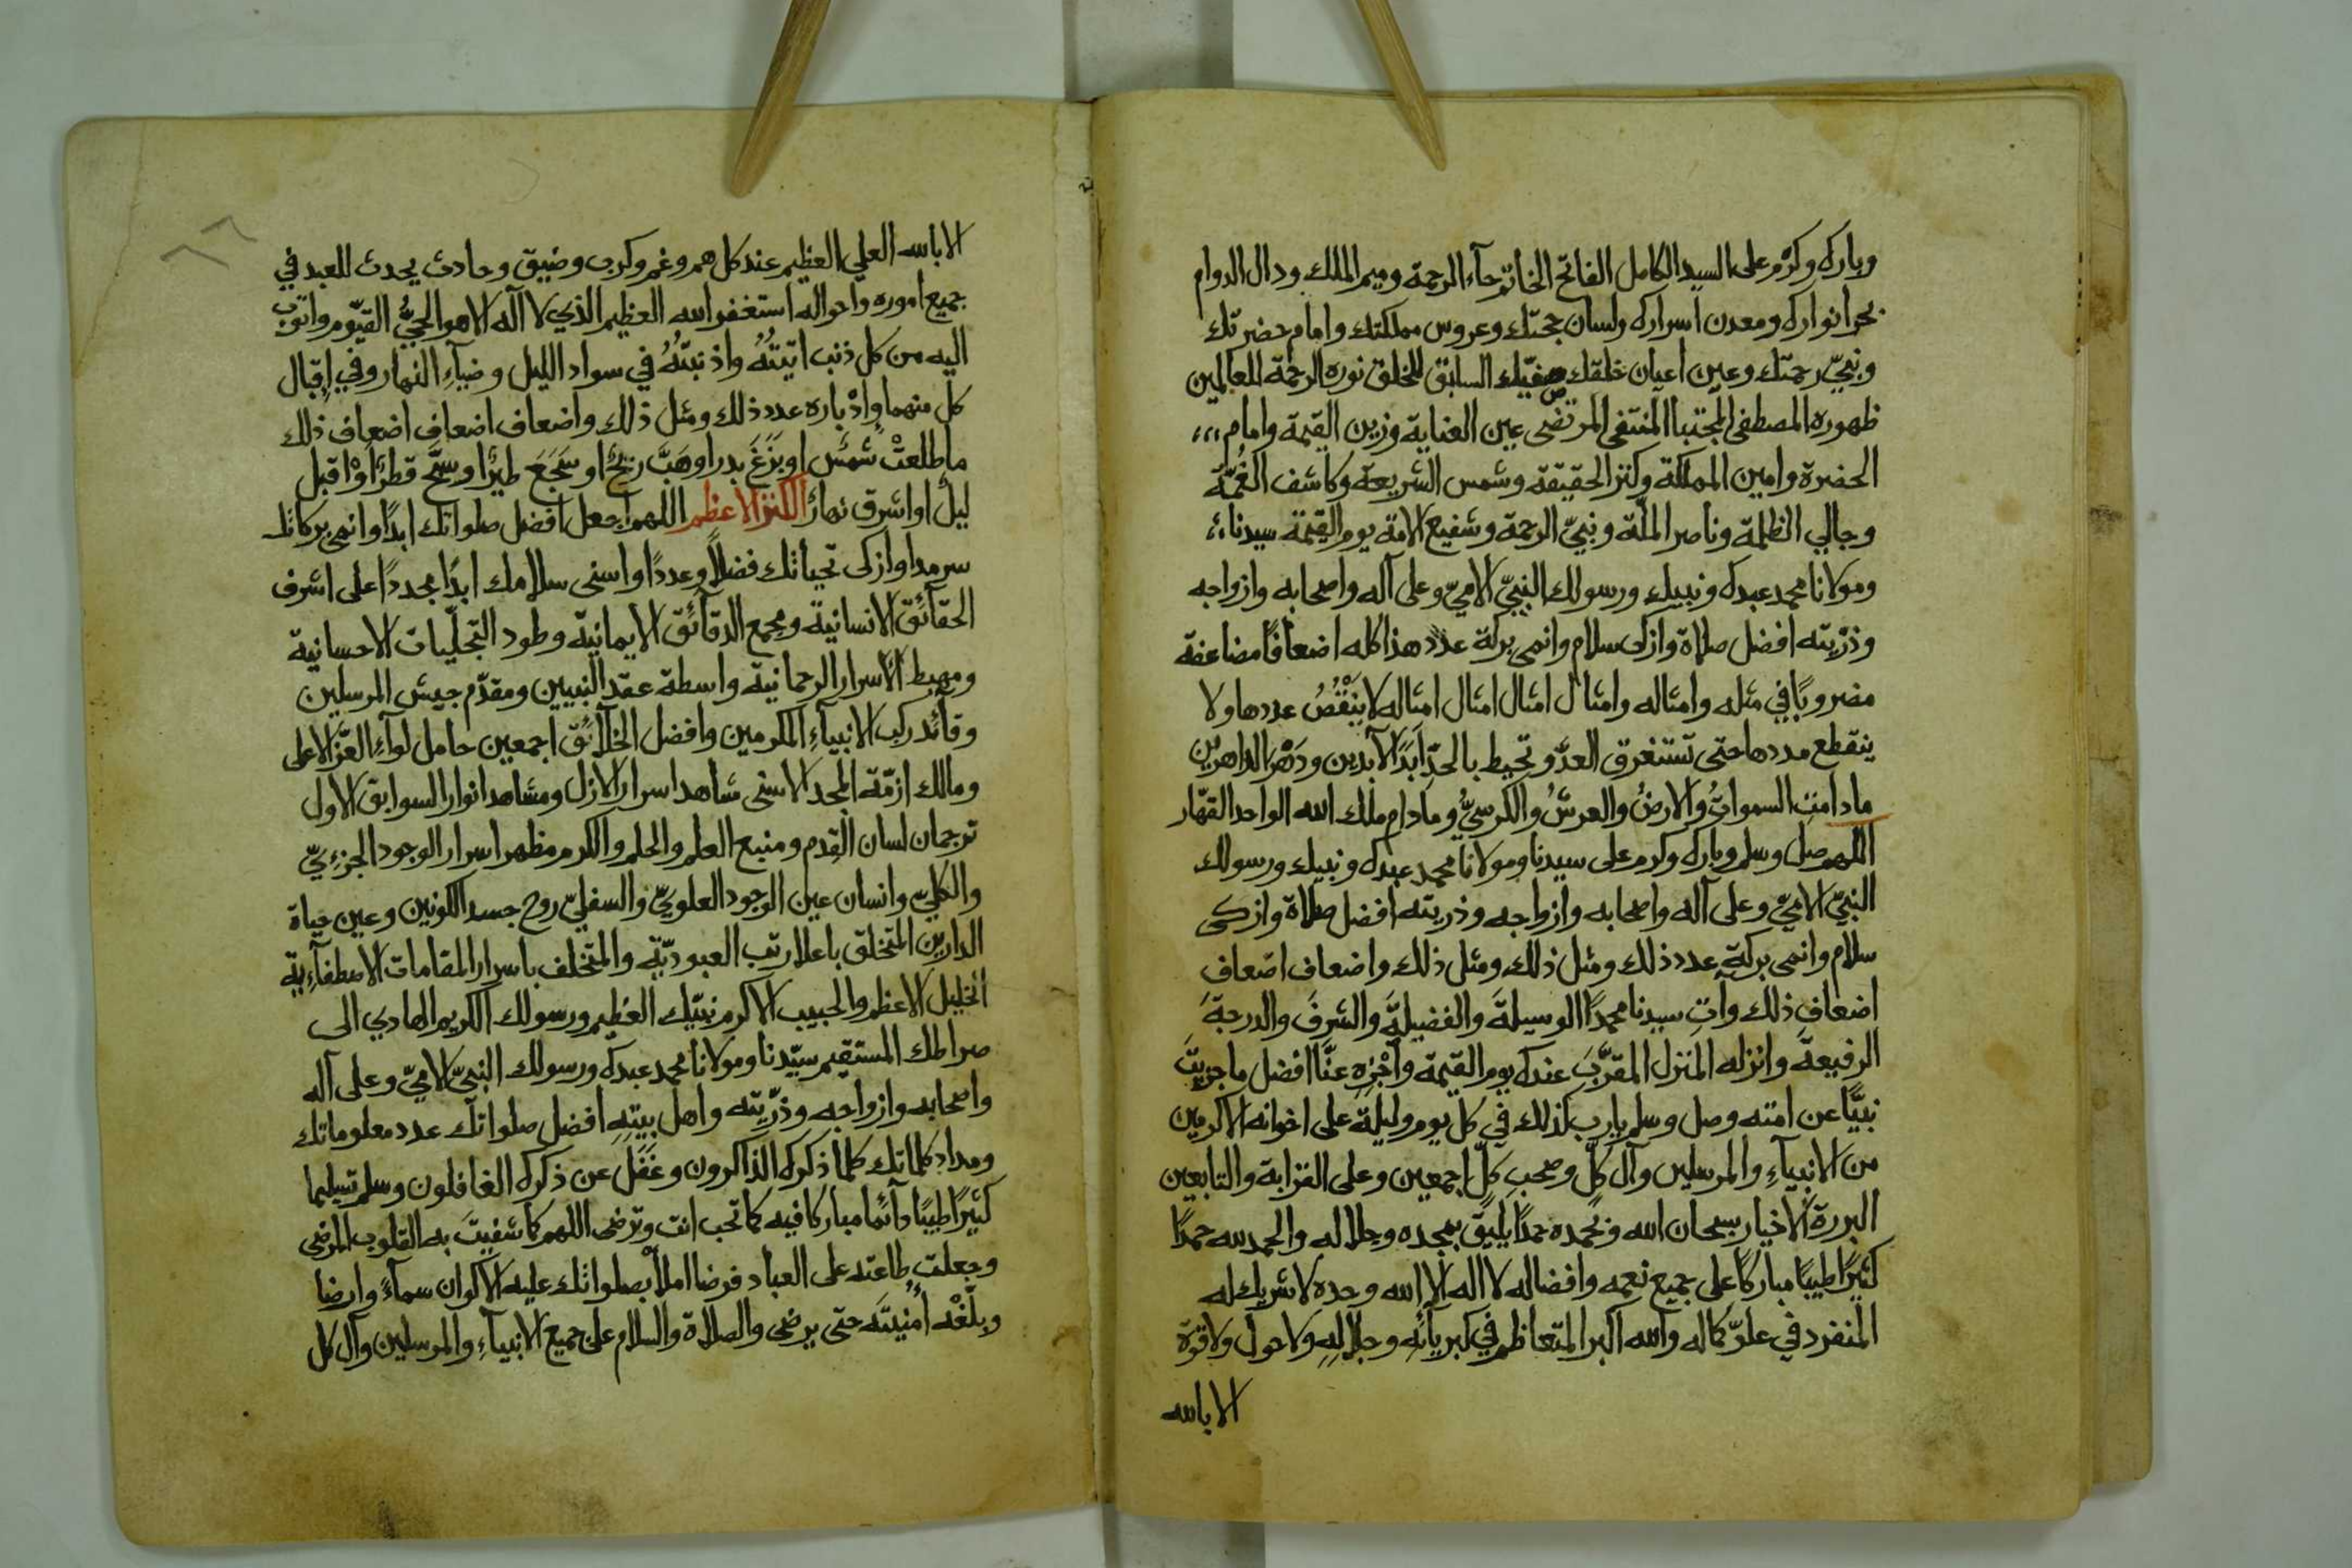 وبارك وكرم على السيد الكامل الفاتح الخاتم حآء الرحمة وميم الملك ودال الدوام
بحر انوارك ومعدن اسرارك ولسان حجتك وعروس مملكتك وامام حضرتك
ونبيّ رحمتك وعين اعيان خلقك صفيّك السابق للخلق نوره الرحمة للعالمين
ظهوره المصطفى المجتبا المنتقى المرتضى عين العناية وزين القيمة وامام
الحضرة وامين المملكة وكنز الحقيقة وشمس الشريعة وكاشف الغُمّة
وجالي الظلمة وناصر الملّة ونبيّ الرحمة وشفيع الامة يوم القيمة سيدنا
ومولانا محمد عبدك ونبيك ورسولك النبيّ الاميّ وعلى آله واصحابه وازواجه
وذرّيته افضل صلاة وازكى سلام وانمى بركة عدد هذا كله اضعافًا مضاعفة
مضروبًا في مثله وامثاله وامثال امثال امثال امثاله لا يَنْقُصُ عددها ولا
ينقطع مددها حتى تستغرق العدّ وتحيط بالحدّ ابَدَ الآبدين ودَهْرَ الداهرين
مادامت السمواتُ والارضُ والعرشُ والكرسيُّ ومادام ملك الله الواحد القهّار
اللهم صل وسلم وبارك وكرم على سيدنا ومولانا محمد عبدك ونبيك ورسولك
النبيّ الاميّ وعلى آله واصحابه وازواجه وذريته افضل صلاة وازكى
سلام وانمى بركة عدد ذلك ومثل ذلك ومثل ذلك واضعاف اضعاف
اضعاف ذلك وآتِ سيدنا محمدًا الوسيلةَ والفضيلةَ والشرفَ والدرجةَ
الرفيعةَ وانزله المنزل المقرَّبَ عندك يوم القيمة وأجْزِهِ عنَّا افضل ما جزيتَ
نبيًّا عن امته وصل وسلم يارب كذلك في كل يوم وليلة على اخوانه الاكرمين
من الانبيآءِ والمرسلين وآل كلّ وصحب كلّ اجمعين وعلى القرابة والتابعين
البررة الاخيار سبحان الله وبحمده حمدًا يليق بمجده وجلاله والحمد لله حمدًا
كثيرًا طيبًا مباركًا على جميع نعمه وافضاله لا اله الا الله وحده لا شريك له
المنفرد في علوّ كماله والله اكبر المتعاظم في كبريآئهِ وجلالِهِ ولا حول ولا قوّة
الا بالله
الا بالله العلي العظيم عند كل هم وغم وكرب وضيق وحادث يحدث للعبد في
جميع اموره واحواله استغفر الله العظيم الذي لا آله الا هو الحيُّ القيّوم واتوب
اليه من كل ذنب اتيْتُهُ واذنبتُهُ في سواد الليل وضيآءِ النهار وفي إقبال
كل منهما وإدْباره عدد ذلك ومثل ذلك واضعاف اضعاف اضعاف ذلك
ما طلعتْ شمسٌ او بَزَغَ بدر او هَبَّ ريحٌ او سَجَعَ طيرٌ او سَحَّ قطرٌ اوْ اقبل
ليلٌ او اشرق نهارٌ الكنز الاعظم اللهم اجعل افضل صلواتك ابدًا وانمى بركاتك
سرمدا وازكى تحياتك فضلاً وعددًا واسنى سلامك ابدًا مجددًا على اشرف
الحقآئق الانسانية ومجمع الدقآئق الايمانيّة وطود التجلّيات الاحسانية
ومهبط الاسرار الرحمانية واسطة عقد النبيين ومقدّم جيش المرسلين
وقآئد ركب الانبيآءِ المكرمين وافضل الخلآئق اجمعين حامل لوآءِ العزّ الاعلى
ومالك ازمّة المجد الاسنى شاهد اسرار الازل ومشاهد انوار السوابق الاول
ترجمان لسان القِدم ومنبع العلم والحلم والكرم مظهر اسرار الوجود الجزءيّ
والكليّ وانسان عين الوجود العلويّ والسفليّ روح جسد الكونين وعين حياة
الدارين المتخلق باعلا رتب العبوديّة والمتخلف باسرار المقامات الاصطفآءية
الخليل الاعظم والحبيب الاكرم نبيّك العظيم ورسولك الكريم الهادي الى
صراطك المستقيم سيّدنا ومولانا محمد عبدك ورسولك النبيّ الاميّ وعلى آله
واصحابه وازواجه وذرّيته واهل بيتِهِ افضل صلواتك عدد معلوماتك
ومداد كلماتك كلما ذكرك الذاكرون وغَفَل عن ذكرك الغافلون وسلم تسليما
كثيرًا طيبًا دآئما مباركا فيه كما تحب انت وترضى اللهم كما شفيتَ به القلوب المرضى
وجعلت طاعته على العباد فرضا املأ بصلواتك عليه الاكوان سمآءً وارضا
وبلّغْه اُمنيتَه حتى يرضى والصلاة والسلام على جميع الانبيآءِ والمرسلين وآل كل